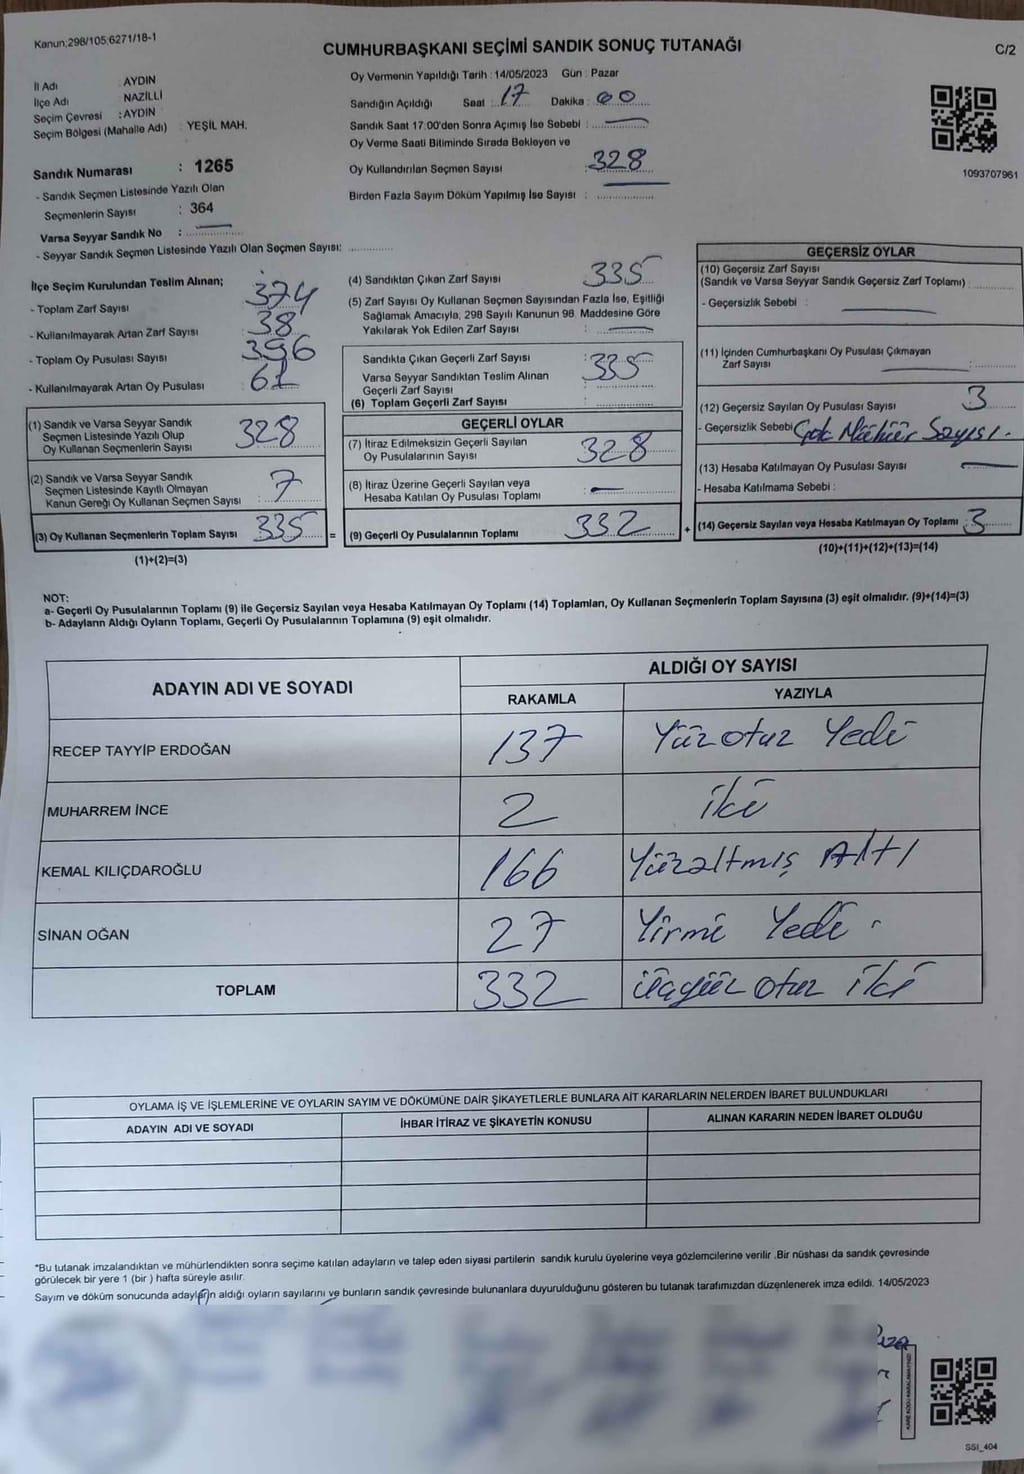 Kanun;298/105;6271/18-1
CUMHURBAŞKANI SEÇİMİ SANDIK SONUÇ TUTANAĞI
C/2
İl Adı : AYDIN
İlçe Adı : NAZİLLİ
Seçim Çevresi : AYDIN
Seçim Bölgesi (Mahalle Adı) : YEŞİL MAH.
Sandık Numarası : 1265
- Sandık Seçmen Listesinde Yazılı Olan
Seçmenlerin Sayısı : 364
Varsa Seyyar Sandık No :
- Seyyar Sandık Seçmen Listesinde Yazılı Olan Seçmen Sayısı:
Oy Vermenin Yapıldığı Tarih : 14/05/2023 Gün : Pazar
Sandığın Açıldığı Saat : 17 Dakika : 00
Sandık Saat 17:00'den Sonra Açımış İse Sebebi :
Oy Verme Saati Bitiminde Sırada Bekleyen ve
Oy Kullandırılan Seçmen Sayısı : 328
Birden Fazla Sayım Döküm Yapılmış İse Sayısı :
1093707961
İlçe Seçim Kurulundan Teslim Alınan;
- Toplam Zarf Sayısı : 374
- Kullanılmayarak Artan Zarf Sayısı : 38
- Toplam Oy Pusulası Sayısı : 396
- Kullanılmayarak Artan Oy Pusulası : 61
(1) Sandık ve Varsa Seyyar Sandık
Seçmen Listesinde Yazılı Olup
Oy Kullanan Seçmenlerin Sayısı 328
(2) Sandık ve Varsa Seyyar Sandık
Seçmen Listesinde Kayıtlı Olmayan
Kanun Gereği Oy Kullanan Seçmen Sayısı : 7
(3) Oy Kullanan Seçmenlerin Toplam Sayısı 335 =
(1)+(2)=(3)
(4) Sandıktan Çıkan Zarf Sayısı : 335
(5) Zarf Sayısı Oy Kullanan Seçmen Sayısından Fazla İse, Eşitliği
Sağlamak Amacıyla, 298 Sayılı Kanunun 98. Maddesine Göre
Yakılarak Yok Edilen Zarf Sayısı :
Sandıkta Çıkan Geçerli Zarf Sayısı : 335
Varsa Seyyar Sandıktan Teslim Alınan
Geçerli Zarf Sayısı :
(6) Toplam Geçerli Zarf Sayısı :
GEÇERLİ OYLAR
(7) İtiraz Edilmeksizin Geçerli Sayılan
Oy Pusulalarının Sayısı 328
(8) İtiraz Üzerine Geçerli Sayılan veya
Hesaba Katılan Oy Pusulası Toplamı :
(9) Geçerli Oy Pusulalarının Toplamı 332 +
GEÇERSİZ OYLAR
(10) Geçersiz Zarf Sayısı
(Sandık ve Varsa Seyyar Sandık Geçersiz Zarf Toplamı) :
- Geçersizlik Sebebi :
(11) İçinden Cumhurbaşkanı Oy Pusulası Çıkmayan
Zarf Sayısı :
(12) Geçersiz Sayılan Oy Pusulası Sayısı : 3
- Geçersizlik Sebebi Çok Mühür Sayısı.
(13) Hesaba Katılmayan Oy Pusulası Sayısı
- Hesaba Katılmama Sebebi :
(14) Geçersiz Sayılan veya Hesaba Katılmayan Oy Toplamı : 3
(10)+(11)+(12)+(13)=(14)
NOT:
a- Geçerli Oy Pusulalarının Toplamı (9) ile Geçersiz Sayılan veya Hesaba Katılmayan Oy Toplamı (14) Toplamları, Oy Kullanan Seçmenlerin Toplam Sayısına (3) eşit olmalıdır. (9)+(14)=(3)
b- Adayların Aldığı Oyların Toplamı, Geçerli Oy Pusulalarının Toplamına (9) eşit olmalıdır.
ADAYIN ADI VE SOYADI
ALDIĞI OY SAYISI
RAKAMLA YAZIYLA
RECEP TAYYİP ERDOĞAN 137 Yüz otuz Yedi
MUHARREM İNCE 2 iki
KEMAL KILIÇDAROĞLU 166 Yüzaltmış Altı
SİNAN OĞAN 27 Yirmi Yedi.
TOPLAM 332 üçyüz otuz iki
OYLAMA İŞ VE İŞLEMLERİNE VE OYLARIN SAYIM VE DÖKÜMÜNE DAİR ŞİKAYETLERLE BUNLARA AİT KARARLARIN NELERDEN İBARET BULUNDUKLARI
ADAYIN ADI VE SOYADI İHBAR İTİRAZ VE ŞİKAYETİN KONUSU ALINAN KARARIN NEDEN İBARET OLDUĞU
*Bu tutanak imzalandıktan ve mühürlendikten sonra seçime katılan adayların ve talep eden siyasi partilerin sandık kurulu üyelerine veya gözlemcilerine verilir .Bir nüshası da sandık çevresinde
görülecek bir yere 1 (bir ) hafta süreyle asılır.
Sayım ve döküm sonucunda adayların aldığı oyların sayılarını ve bunların sandık çevresinde bulunanlara duyurulduğunu gösteren bu tutanak tarafımızdan düzenlenerek imza edildi. 14/05/2023
SSI_404